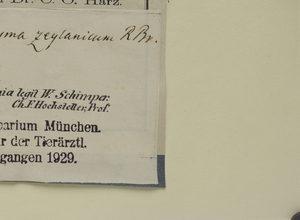 Dr. C. O. Harz.
zeylanicum R Br.
legit W. Schimper.
Ch. F. Hochstetter, Prof.
München.
der Tierärztl.
gangen 1929.